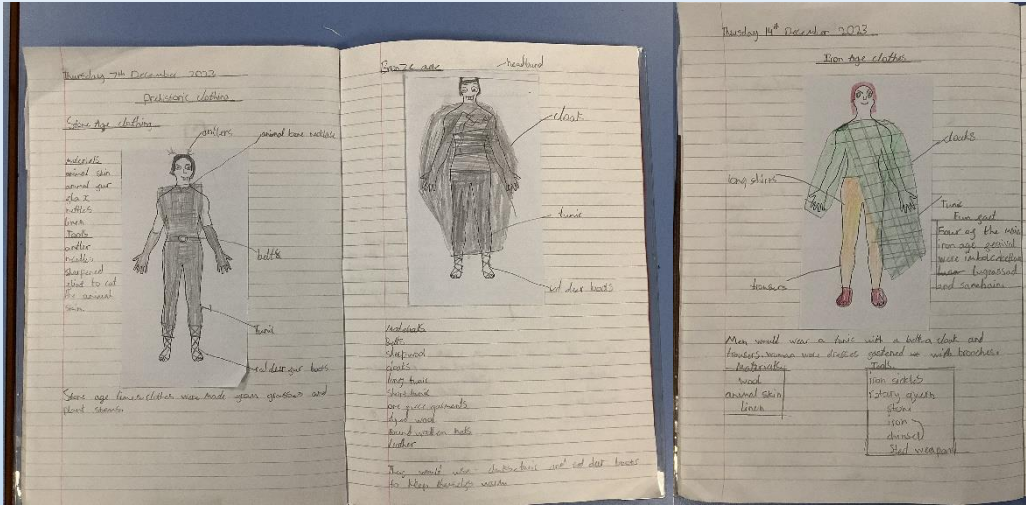 Thursday 7th December 2023
Prehistoric clothing
Stone Age clothing
antlers
animal bone necklace
materials
animal skin
animal fur
flax
nettles
linen
Tools
antler
needles
sharpened
flint to cut
the animal
skin
belts
tunic
red deer fur boots
Stone age linen clothes were made from grasses and
plant stems.
Bronze age
headband
cloak
tunic
red deer boots
materials
Belts
sheep wool
cloaks
long tunic
short tunic
one piece garments
dyed wool
round woollen hats
leather
They would use cloaks, tunic and red deer boots
to keep themselves warm
Thursday 14th December 2023
Iron Age clothes
cloaks
long shirts
Tunic
trousers
Fun fact
Four of the main
iron age festival
were imbolc, beltane
lugnasad
and samhain.
Men would wear a tunic with a belt, a cloak and
trousers. woman wore dresses fastened with broaches.
Materials
wool
animal skin
linen
Tools
iron sickles
rotary quern
stone
iron
chisel
Sted weapons